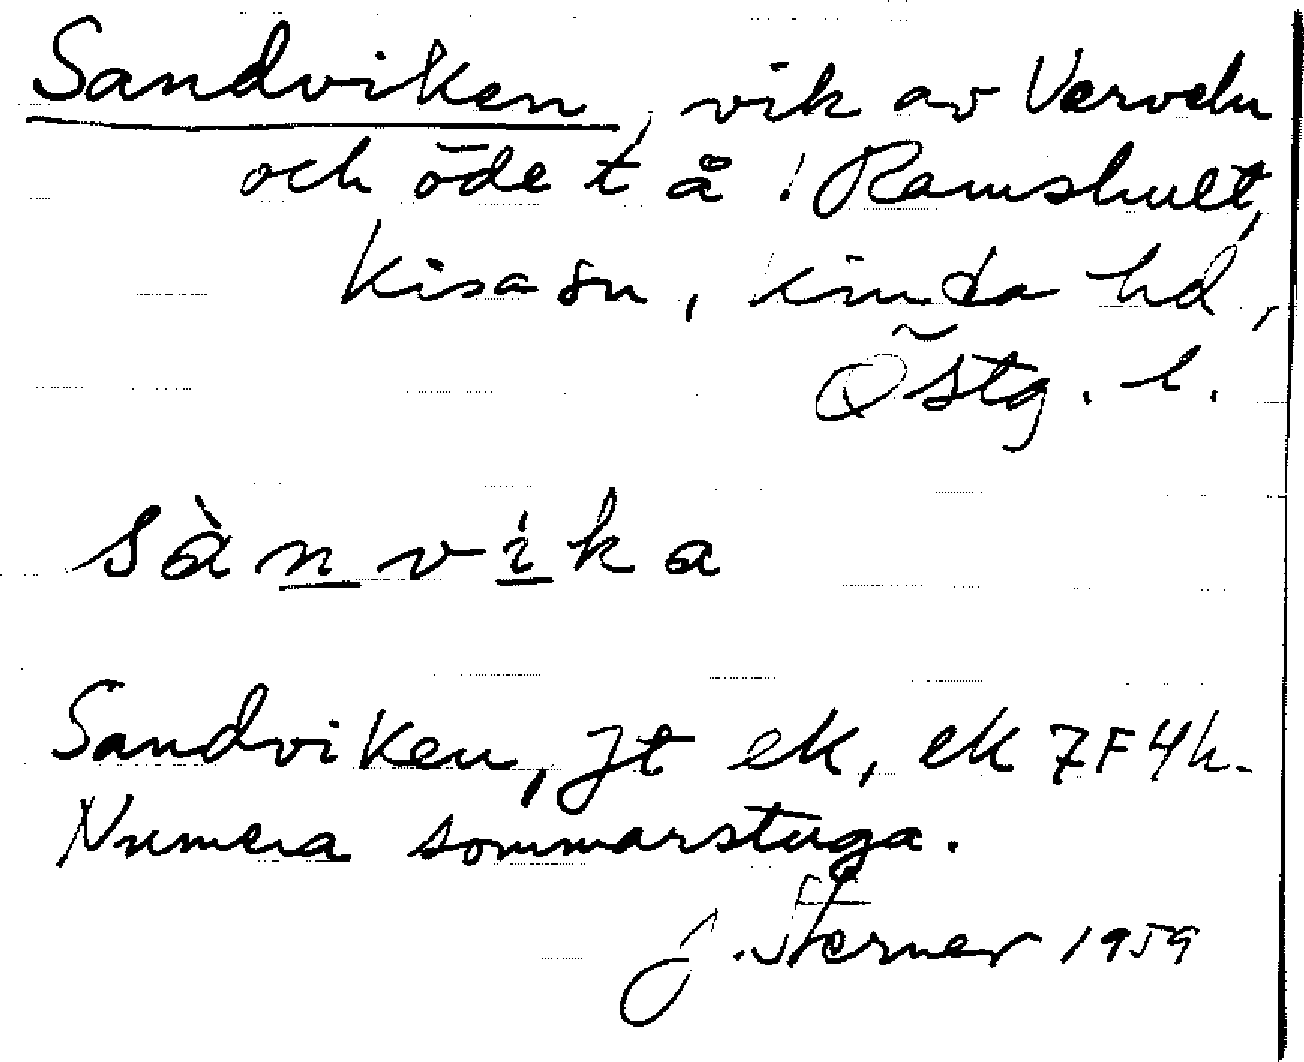 Sandviken, vik av Verveln
och öde t å ! Ramshult,
Kisa sn, Kinda hd,
Östg. l.
sànvika
Sandviken, jt ek, ek 7F4h.
Numera sommarstuga.
J. Sterner 1959